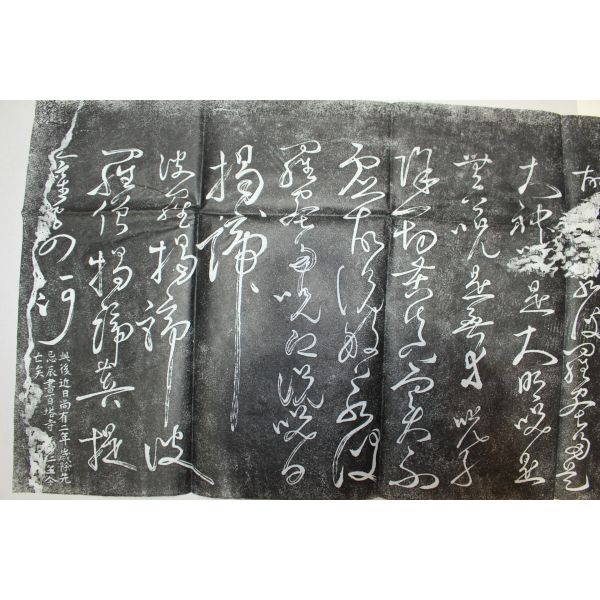 故般若波羅蜜多是
大神咒是大明咒是
無上咒是無等等咒能
除一切苦真實不
虛故說般若波
羅蜜多咒即說咒曰
揭諦
波羅揭諦波
羅僧揭諦菩提
訶
後近日尚有二年歲除先
忌辰書百塔寺今
亡矣